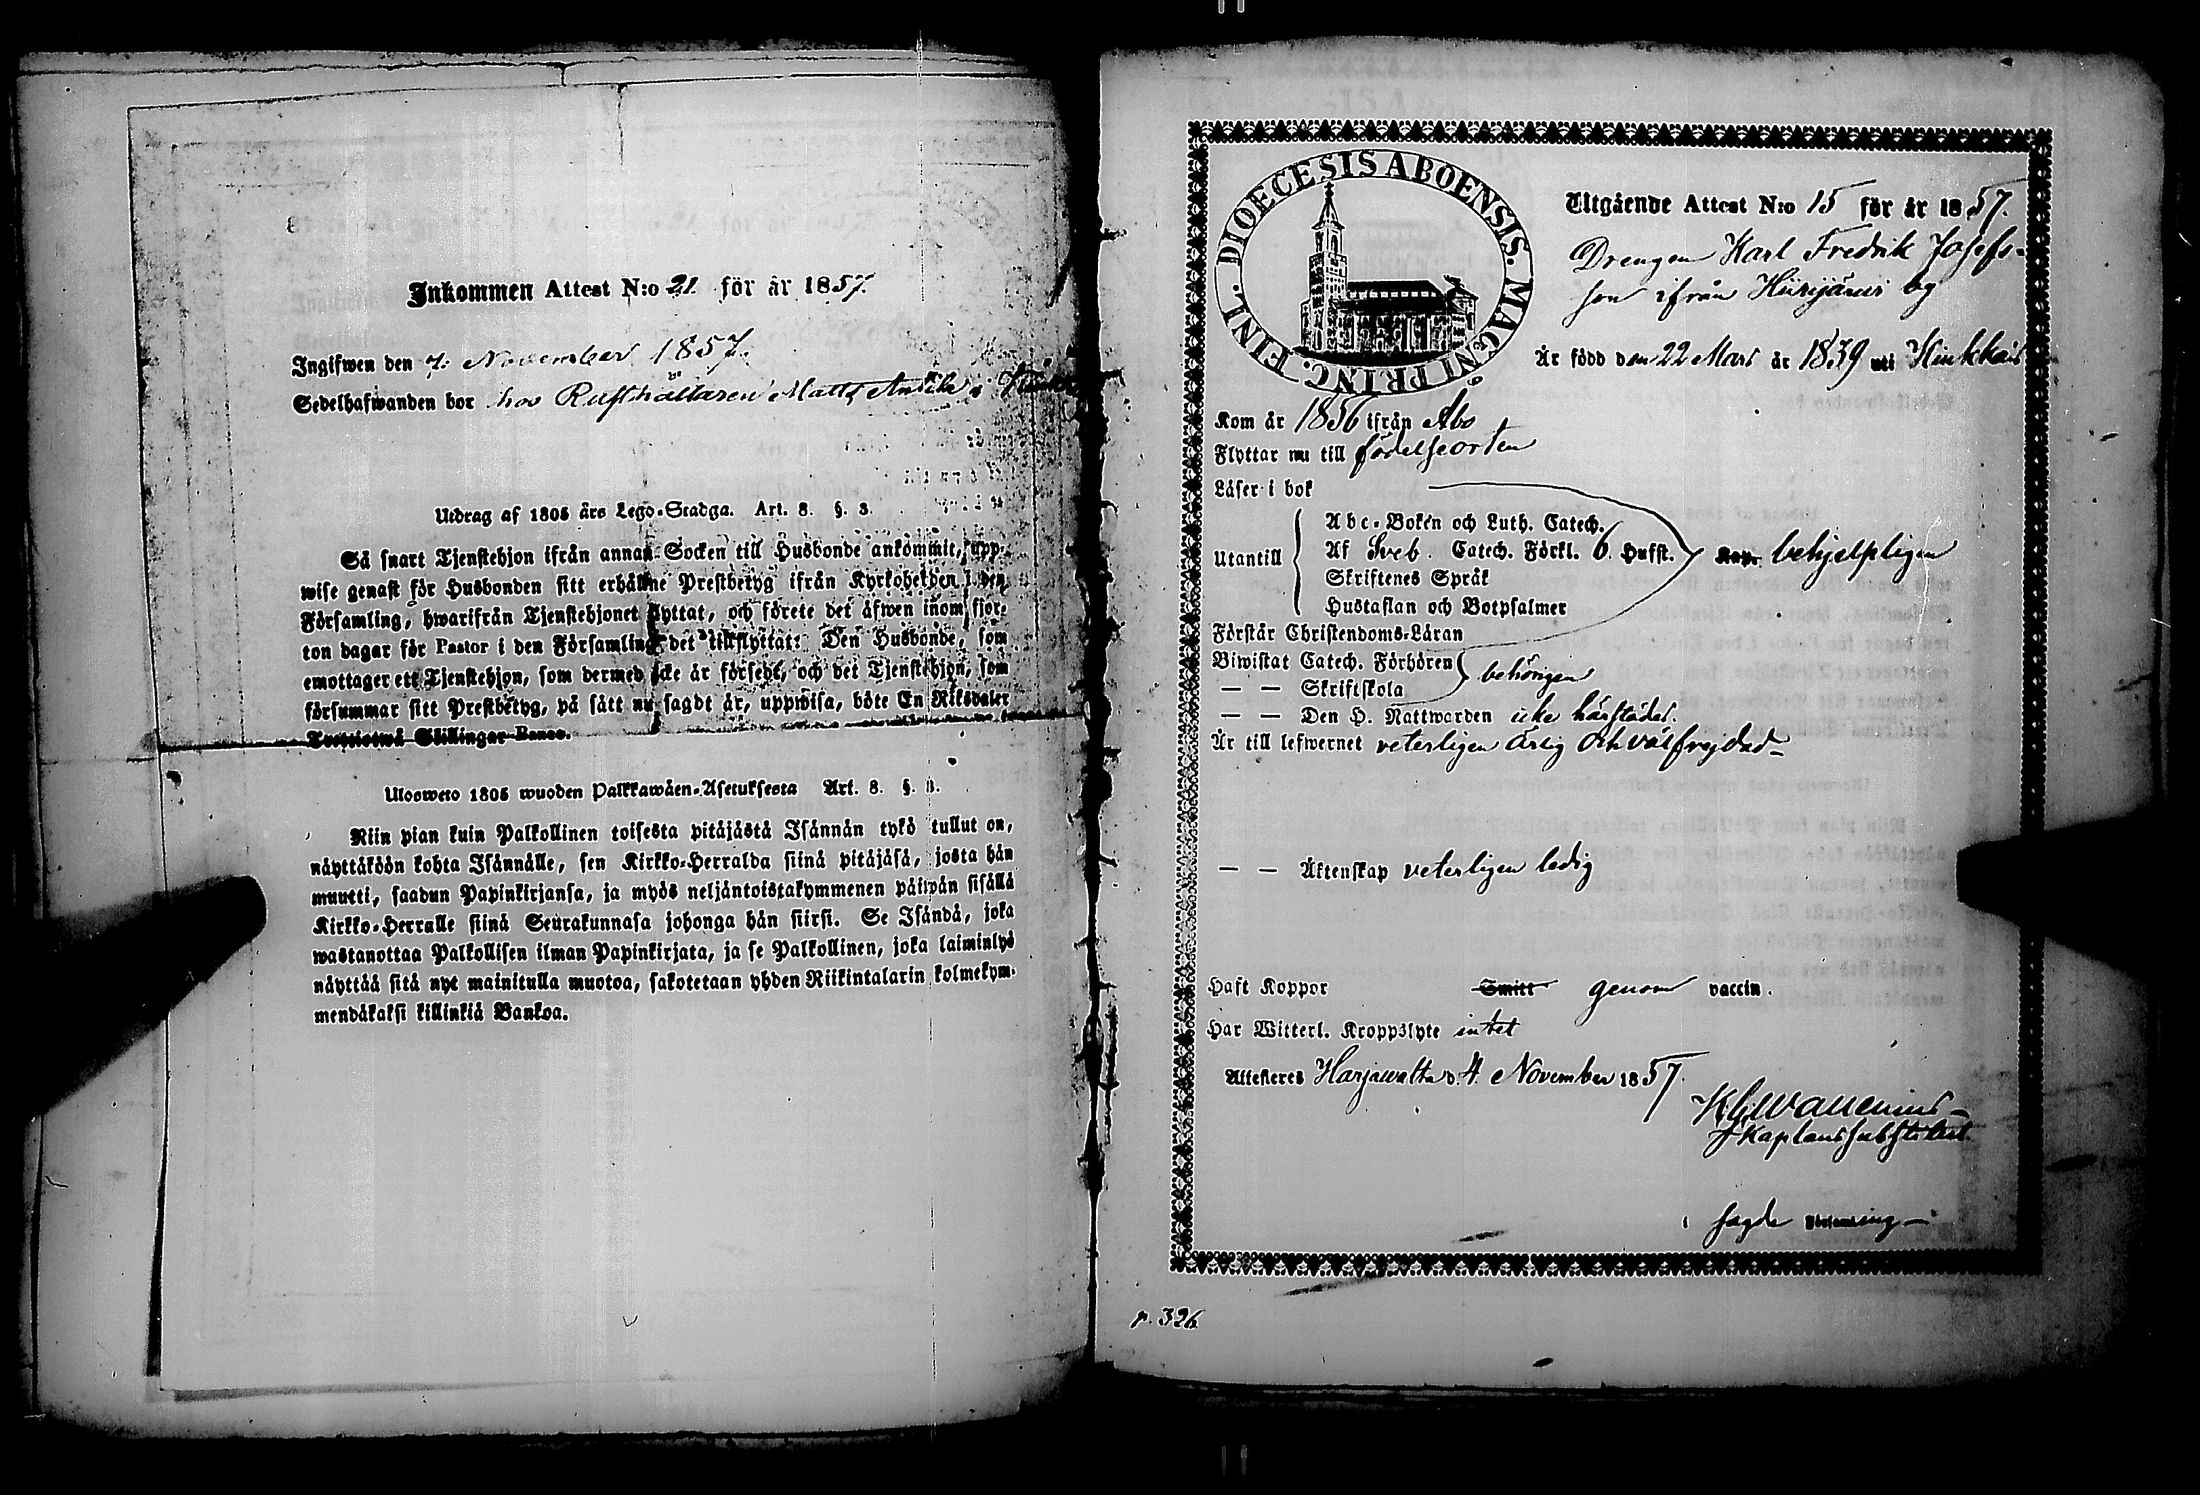 Inkommen Attest N:o 21. för år 1857.
Ingifwen den 7. November 1857.
Sedelhafwanden bor hos Rusthållaren Matts Anttila i
Utdrag af 1805 års Lego-Stadga. Art. 8. §. 3.
Så snart Tjenstehjon ifrån annan Socken till Husbonde ankommit, upp-
wise genast för Husbonden sitt erhållne Prestbetyg ifrån Kyrkoherden i den
Församling, hwarifrån Tjenstehjonet flyttat, och förete det äfwen inom fjor-
ton dagar för Pastor i den Församling det tillflyttat: Den Husbonde, som
emottager ett Tjenstehjon, som dermed icke är försedt, och det Tjenstehjon, som
försummar sitt Prestbetyg, på sätt nu sagdt är, uppwisa, böte En Riksdaler
Trettiotwå Skillingar Banco.
Ulosweto 1805 wuoden Palkkawäen-Asetuksesta Art. 8. §. 3.
Niin pian kuin Palkollinen toisesta pitäjästä Isännän tykö tullut on,
näyttäköön kohta Isännälle, sen Kirkko-Herralda siinä pitäjäsä, josta hän
muutti, saadun Papinkirjansa, ja myös neljäntoistakymmenen päiwän sisällä
Kirkko-Herralle siinä Seurakunnasa johonga hän siirsi. Se Isändä, joka
wastanottaa Palkollisen ilman Papinkirjata, ja se Palkollinen, joka laiminlyö
näyttää sitä nyt mainitulla muotoa, sakotetaan yhden Riikintalarin kolmekym-
mendäkaksi killinkiä Bankoa.
DIOECESIS ABOENSIS. MAGNI PRINC. FINL.
Utgående Attest N:o 15 för år 1857.
Drengen Karl Fredrik Josefs-
son ifrån Hiirijärvi by
Är född den 22 Mars år 1839 uti
Kom år 1856 ifrån Åbo
Flyttar nu till födelseorten
Läser i bok
Abc-Boken och Luth. Catech.
Utantill Af Sveb. Catech. Förkl. 6 Hufst. behjelpligen
Skriftenes Språk
Hustaflan och Botpsalmer
Förstår Christendoms-Läran
Biwistat Catech. Förhören behörigen
— — Skriftskola
— — Den H. Nattwarden icke härstädes.
Är till lefwernet veterligen ärlig och välfrejdad—
— — Äktenskap veterligen ledig
Haft Koppor Smitt genom vaccin.
Har Witterl. Kroppslyte intet
Attesteras Harjawalta d. 4 November 1857.
Kaplanssubstitut
i sagde Församling—
p. 326